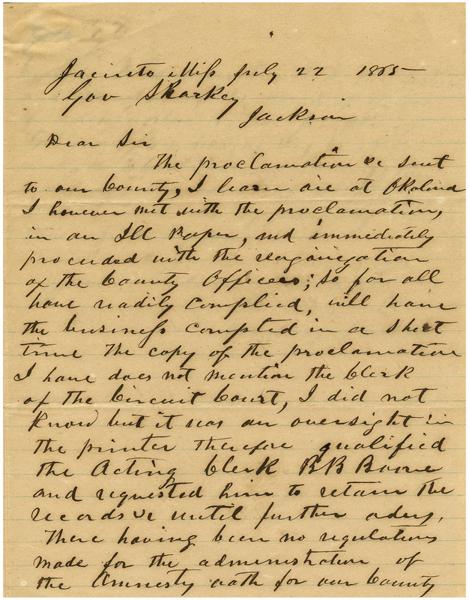 Jacinto Miss July 22 1865
Gov Sharkey
Jackson
Dear Sir
The proclamation &c sent
to our County, I learn are at Okolona
I however met with the proclamation,
in an Ill Paper, and immediately
proceeded with the reorganization
of the County Officers; so far all
have readily complied, will have
the business completed in a short
time The copy of the proclamation
I have does not mention the Clerk
of the Circuit Court, I did not
know but it was an oversight in
the printer therefore qualified
the Acting Clerk B B Boone
and requested him to retain the
records &c until further
There having been no regulations
made for the administration of
the Amnesty oath for our County